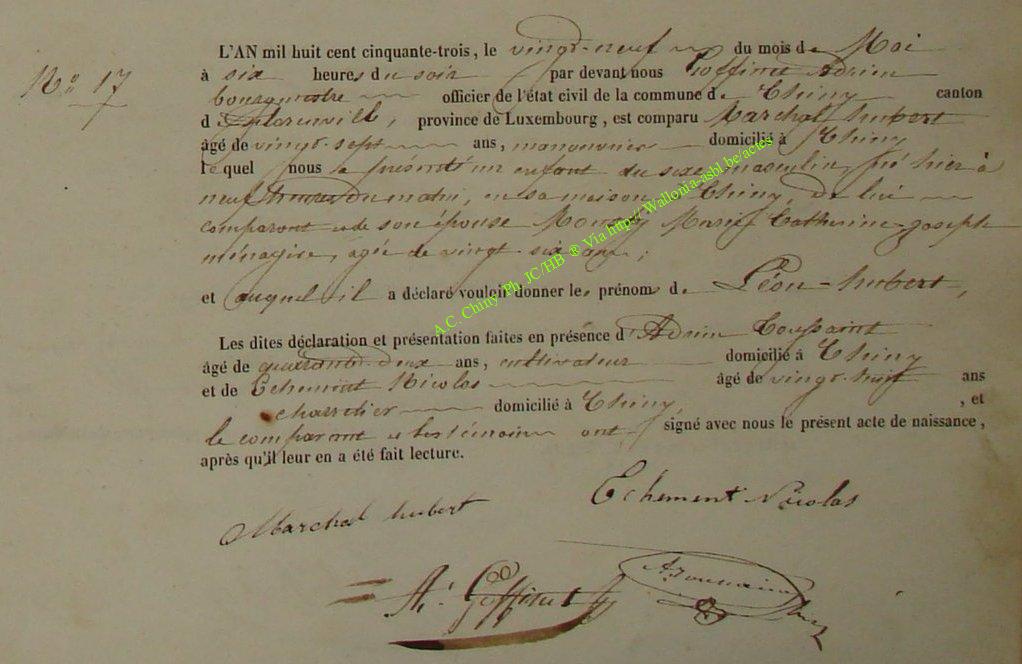 No 17
L'AN mil huit cent cinquante-trois, le vingt-neuf du mois de Mai
à six heures du soir par devant nous Goffinet Adrien
bourgmestre officier de l'état civil de la commune de Chiny canton
d , province de Luxembourg, est comparu Marchal hubert
âgé de vingt-sept ans, manouvrier domicilié à Chiny
lequel nous a présenté un enfant du sexe masculin, né hier à
neuf heures du matin, en sa maison à Chiny, de lui
comparant et de son épouse Marie Catherine-joseph
ménagère, agée de vingt six ans;
et auquel il a déclaré vouloir donner les prénoms de Léon-hubert,
Les dites déclaration et présentation faites en présence d'Adrien Toussaint
âgé de quarante-deux ans, cultivateur domicilié à Chiny
et de Echement Nicolas âgé de vingt-huit ans
charretier domicilié à Chiny, , et
le comparant et les témoins ont signé avec nous le présent acte de naissance,
après qu'il leur en a été fait lecture.
Marchal hubert
Echement Nicolas
A. Goffinet
A. Toussaint
A.C. Chiny Ph JC/HB ® Via http://Wallonia-asbl.be/actes